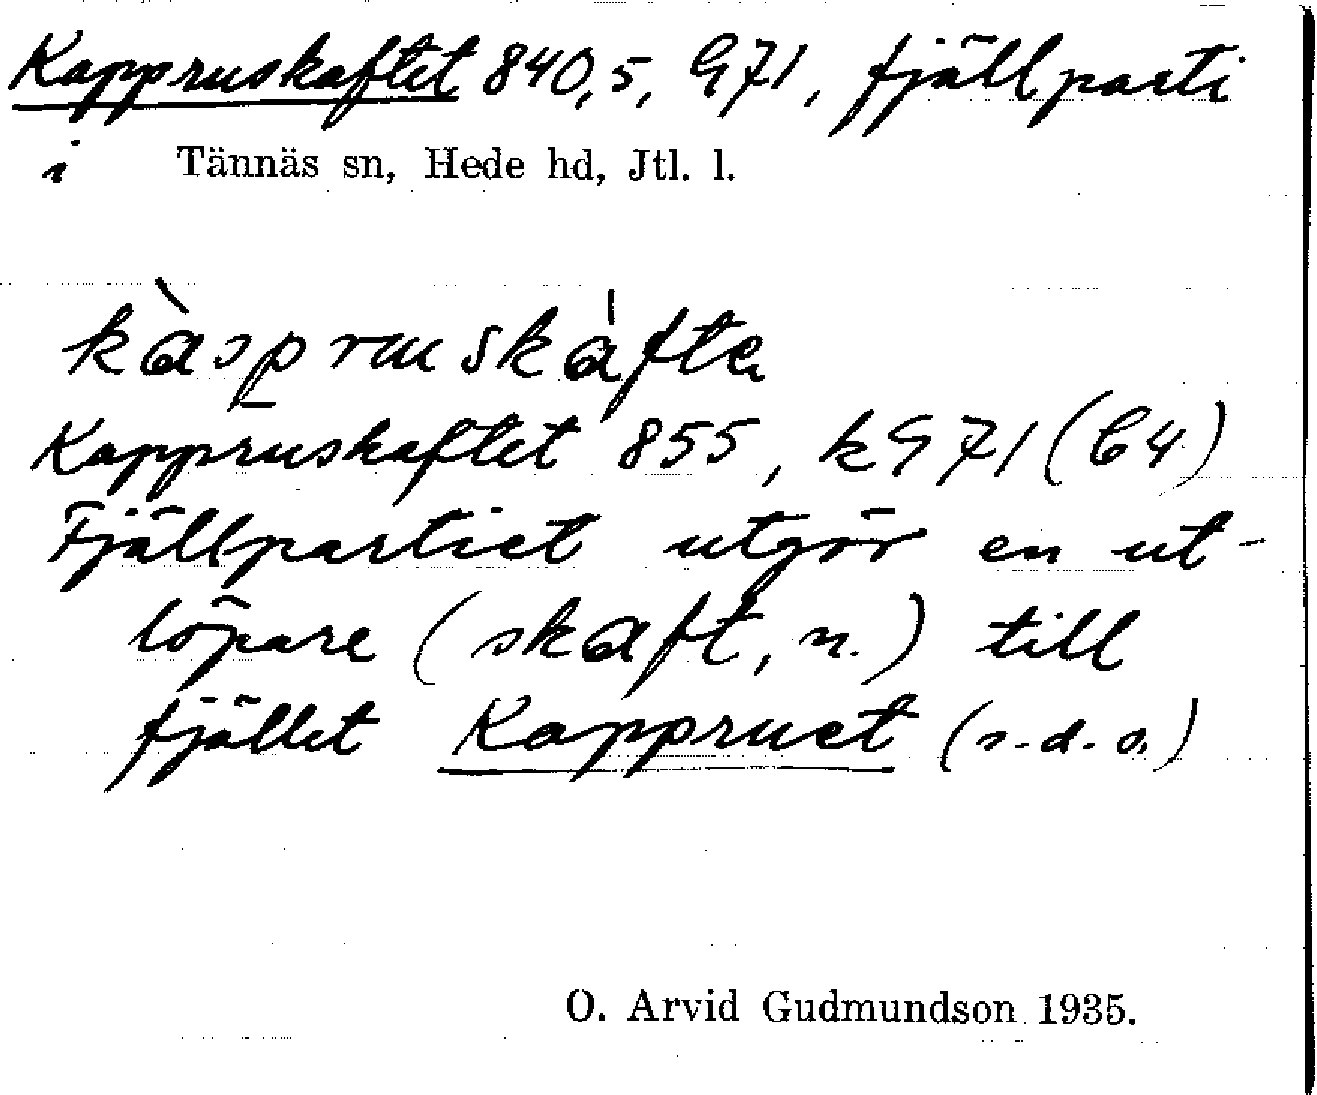 Kappruskaftet 840,5, G71, fjällparti
i Tännäs sn, Hede hd, Jtl. l.
kàspruskáfta
Kappruskaftet 855, kG71 (C4)
Fjällpartiet utgör en ut-
löpare (skaft, n.) till
fjället Kappruet (s.d.o.)
O. Arvid Gudmundson 1935.